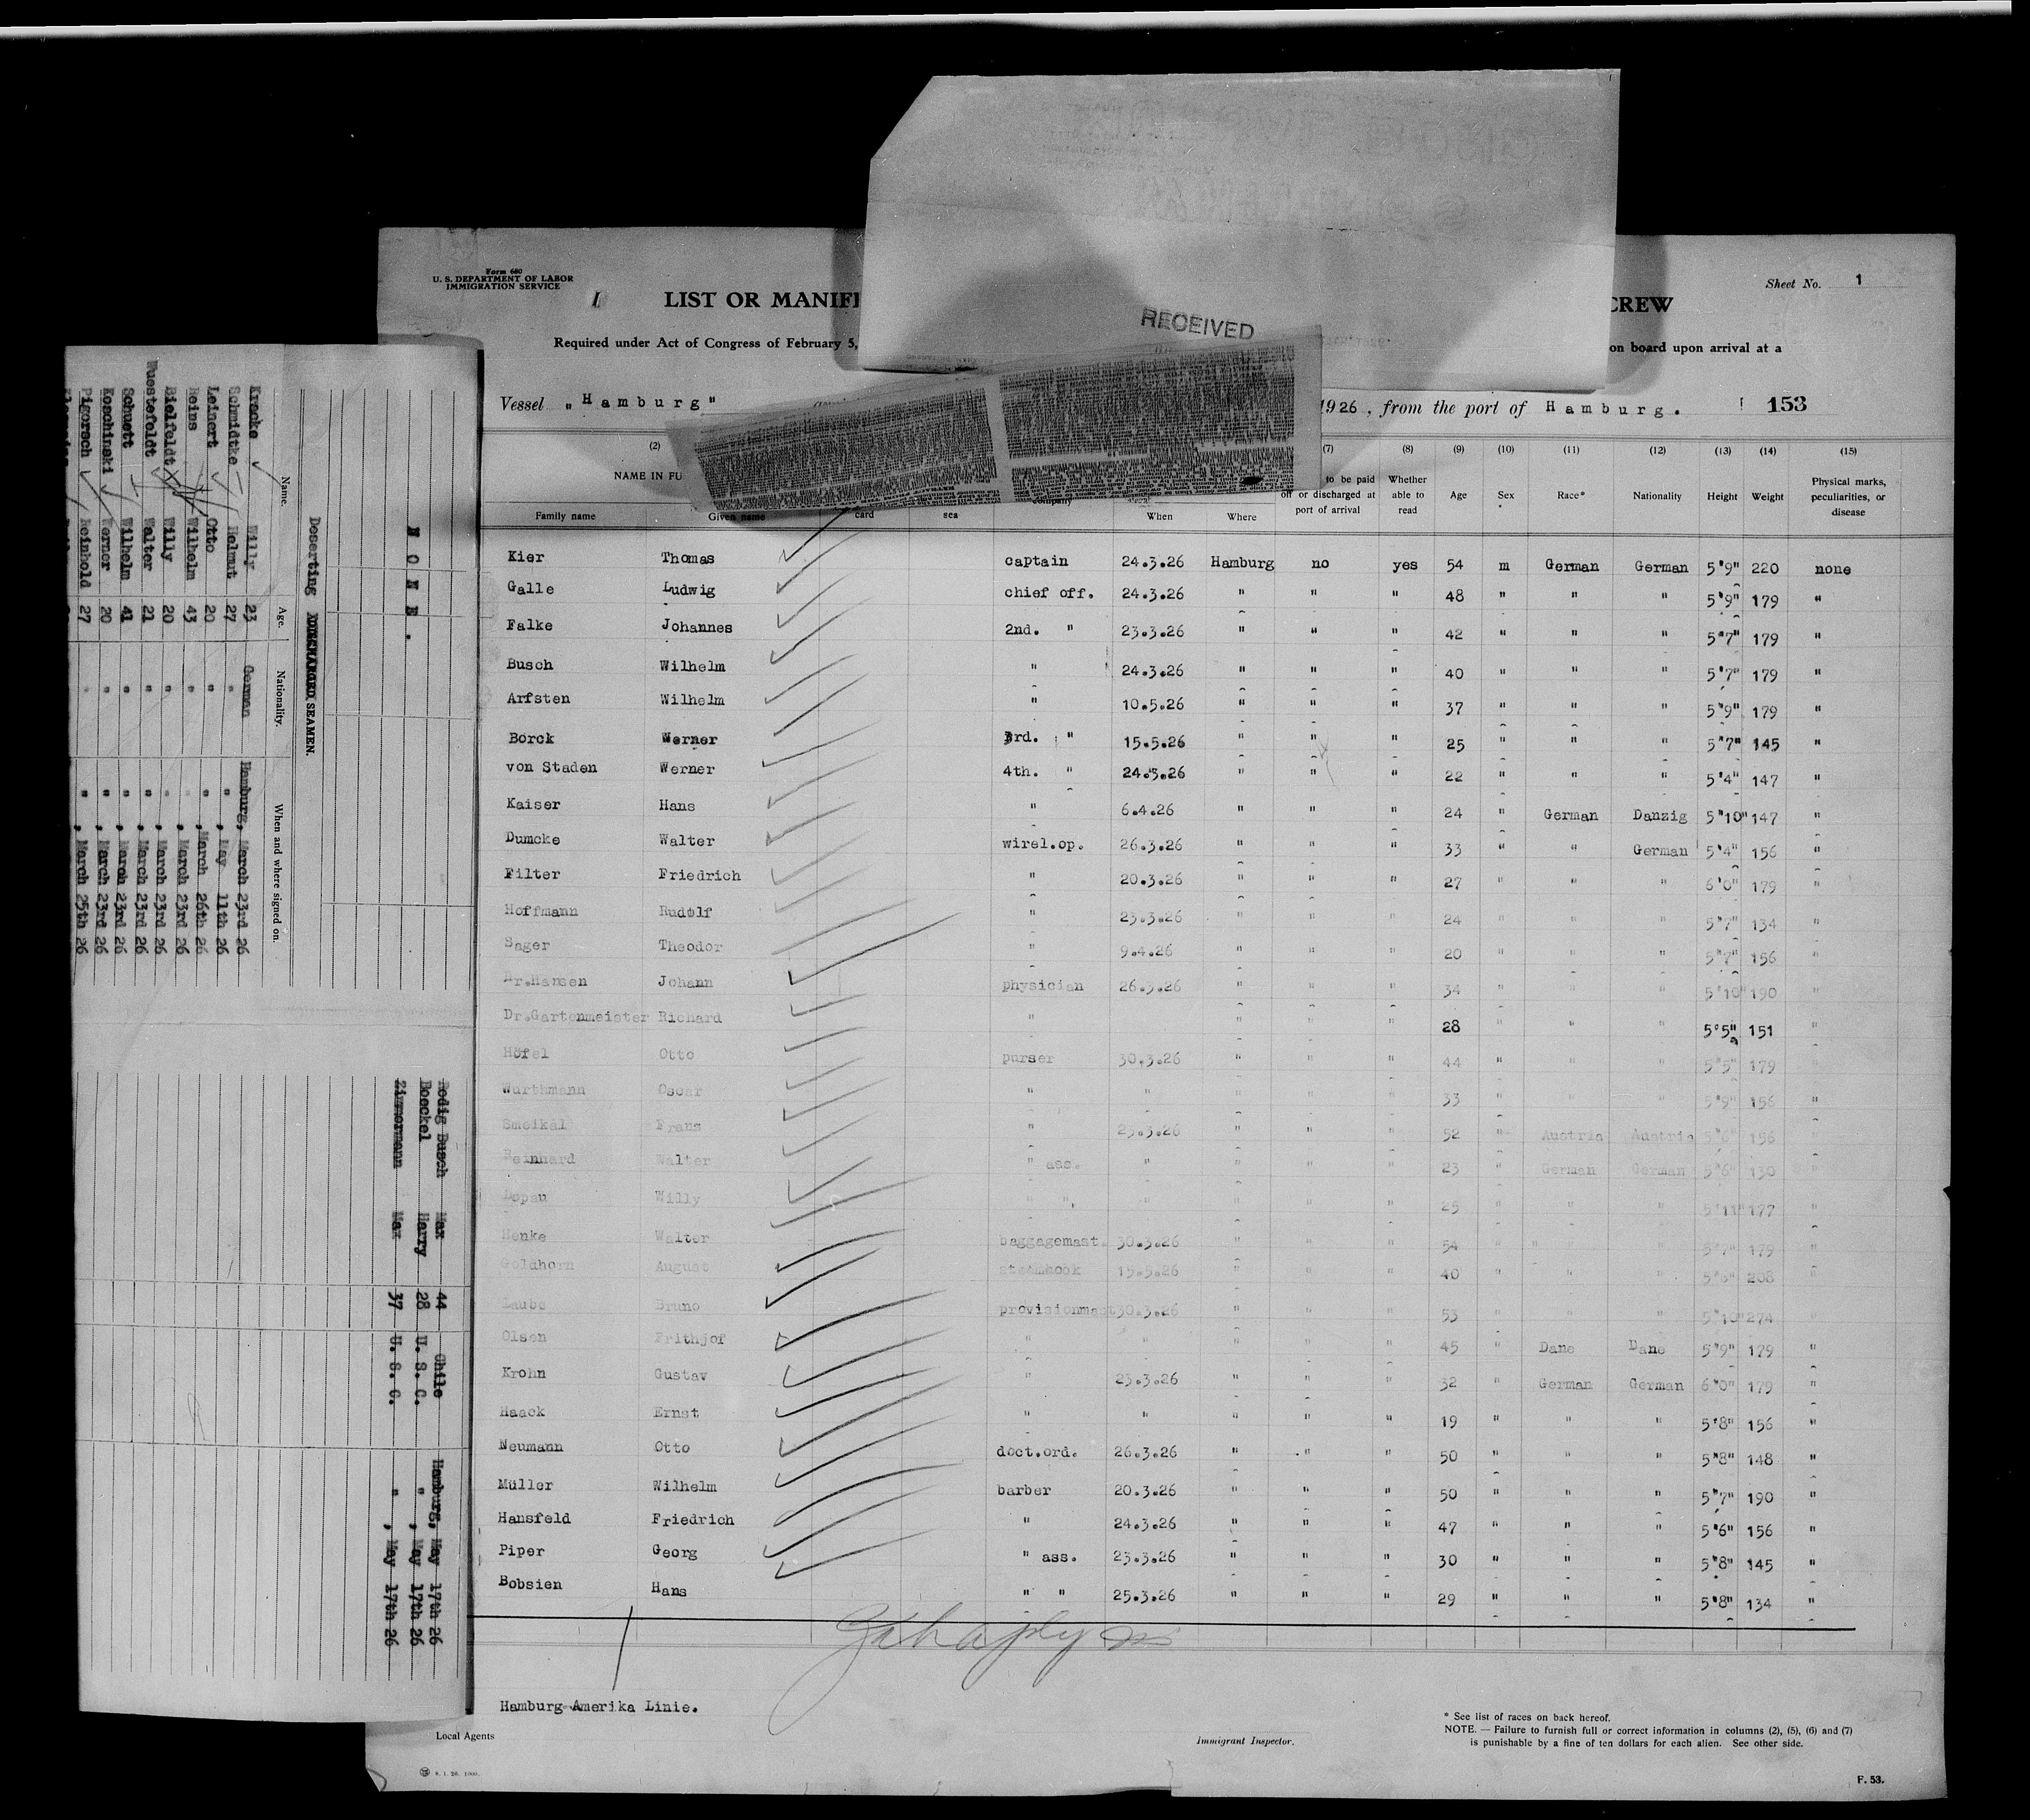 Form 680
U. S. DEPARTMENT OF LABOR
IMMIGRATION SERVICE
Sheet No. 1
LIST OR MANIF CREW
RECEIVED
Required under Act of Congress of February 5, on board upon arrival at a
Vessel "Hamburg" 1926, from the port of Hamburg. 153
(2) (7) (8) (9) (10) (11) (12) (13) (14) (15)
NAME IN FU to be paid off or discharged at port of arrival Whether able to read Age Sex Race* Nationality Height Weight Physical marks, peculiarities, or disease
Family name Given name card sea company When Where
Kier Thomas captain 24.3.26 Hamburg no yes 54 m German German 5'9" 220 none
Galle Ludwig chief off. 24.3.26 " " " 48 " " " 5'9" 179 "
Falke Johannes 2nd. " 23.3.26 " " " 42 " " " 5'7" 179 "
Busch Wilhelm " 24.3.26 " " " 40 " " " 5'7" 179 "
Arfsten Wilhelm " 10.5.26 " " " 37 " " " 5'9" 179 "
Borck Werner 3rd. " 15.5.26 " " " 25 " " " 5'7" 145 "
von Staden Werner 4th. " 24.3.26 " " " 22 " " " 5'4" 147 "
Kaiser Hans " 6.4.26 " " " 24 " German Danzig 5'10" 147 "
Dumcke Walter wirel.op. 26.3.26 " " " 33 " " German 5'4" 156 "
Filter Friedrich " 20.3.26 " " " 27 " " " 6'0" 179 "
Hoffmann Rudolf " 23.3.26 " " " 24 " " " 5'7" 134 "
Sager Theodor " 9.4.26 " " " 20 " " " 5'7" 156 "
Dr.Hansen Johann physician 26.3.26 " " " 34 " " " 5'10" 190 "
Dr.Gartenmeister Richard " " " " 28 " " " 5'5" 151 "
Höfel Otto purser 30.3.26 " " " 44 " " " 5'5" 179 "
Wurthmann Oscar " " " " " 33 " " " 5'9" 156 "
Smeikal Franz " 23.3.26 " " " 52 " Austria Austria 5'6" 156 "
Reinhard Walter " ass. " " " " 23 " German German 5'6" 130 "
Dopau Willy " " " " " " 25 " " " 5'11" 177 "
Henke Walter baggagemast. 30.3.26 " " " 54 " " " 5'7" 179 "
Goldhorn August 15.3.26 " " " 40 " " " 5'6" 208 "
Laube Bruno provisionmast 30.3.26 " " " 53 " " " 5'10" 274 "
Olsen Frithjof " " " " " 45 " Dane Dane 5'9" 179 "
Krohn Gustav " 23.3.26 " " " 32 " German German 6'0" 179 "
Haack Ernst " " " " " 19 " " " 5'8" 156 "
Neumann Otto doct.ord. 26.3.26 " " " 50 " " " 5'8" 148 "
Müller Wilhelm barber 20.3.26 " " " 50 " " " 5'7" 190 "
Hansfeld Friedrich " 24.3.26 " " " 47 " " " 5'6" 156 "
Piper Georg " ass. 23.3.26 " " " 30 " " " 5'8" 145 "
Bobsien Hans " " 25.3.26 " " " 29 " " " 5'8" 134 "
Hamburg-Amerika Linie.
Local Agents
Immigrant Inspector.
* See list of races on back hereof.
NOTE. — Failure to furnish full or correct information in columns (2), (5), (6) and (7)
is punishable by a fine of ten dollars for each alien. See other side.
8. 1. 26. 1000.
F. 53.
NONE.
Deserting DISCHARGED SEAMEN.
Name. Age. Nationality. When and where signed on.
Kracke Willy 23 German Hamburg, March 23rd 26
Schmidtke Helmut 27 " " , May 11th 26
Leinert Otto 20 " " , March 26th 26
Reins Wilhelm 43 " " , March 23rd 26
Bielfeldt Willy 20 " " , March 23rd 26
Wuestefeldt Walter 21 " " , March 23rd 26
Schuett Wilhelm 41 " " , March 23rd 26
Koschinski Werner 20 " " , March 23rd 26
Pigorsch Reinhold 27 " " , March 25th 26
Rodig Busch Max 44 Chile Hamburg, May 17th 26
Boeckel Harry 28 U. S. C. " , May 17th 26
Zimmermann Max 37 U. S. C. " , May 17th 26